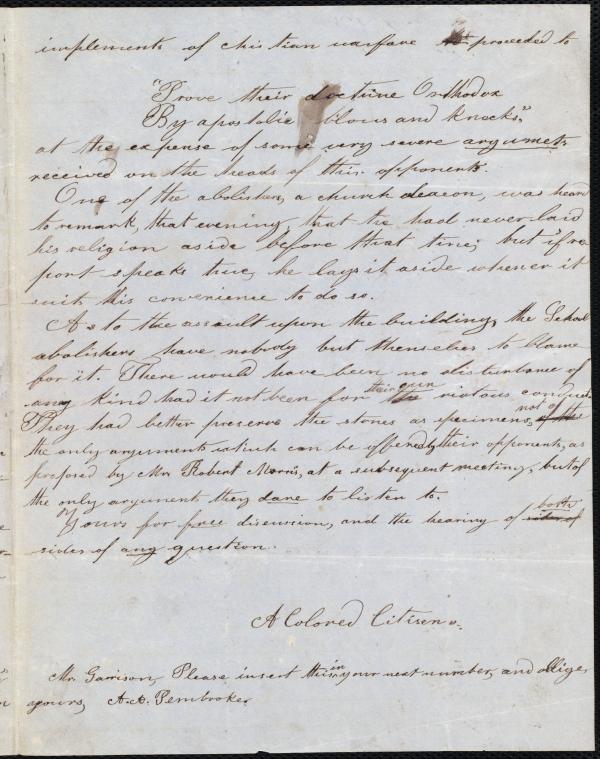 implements of christian warfare proceeded to
"Prove their doctrine Orthodox
By apostolic blows and knocks"
at the expense of some very severe argumets
received on the heads of this opponents.
One of the abolishers, a church deacon, was heard
to remark, that evening, that he had never laid
his religion aside before that time; but if re
port speaks true, he lays it aside whenever it
suit his convenience to do so.
As to the assault upon the building, the School
abolishers have nobody but themselves to blame
for it. There would have been no disturbance of
any kind had it not been for their own riotous conduct.
They had better preserve the stones as specimens, not of
the only arguments which can be offered by their opponents, as
prefored by Mr. Robert Morris, at a subsequent meeting, but of
the only argument they dare to listen to.
Yours for free discussion, and the hearing of both sides of
sides of any question.
A Colored Citisen.
Mr. Garrison, Please insert this in your next number, and oblige,
yours, A.A. Pembroke